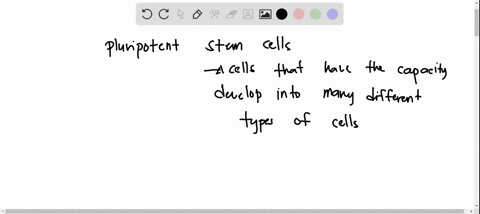 pluripotent stem cells
→ cells that have the capacity
develop into many different
types of cells